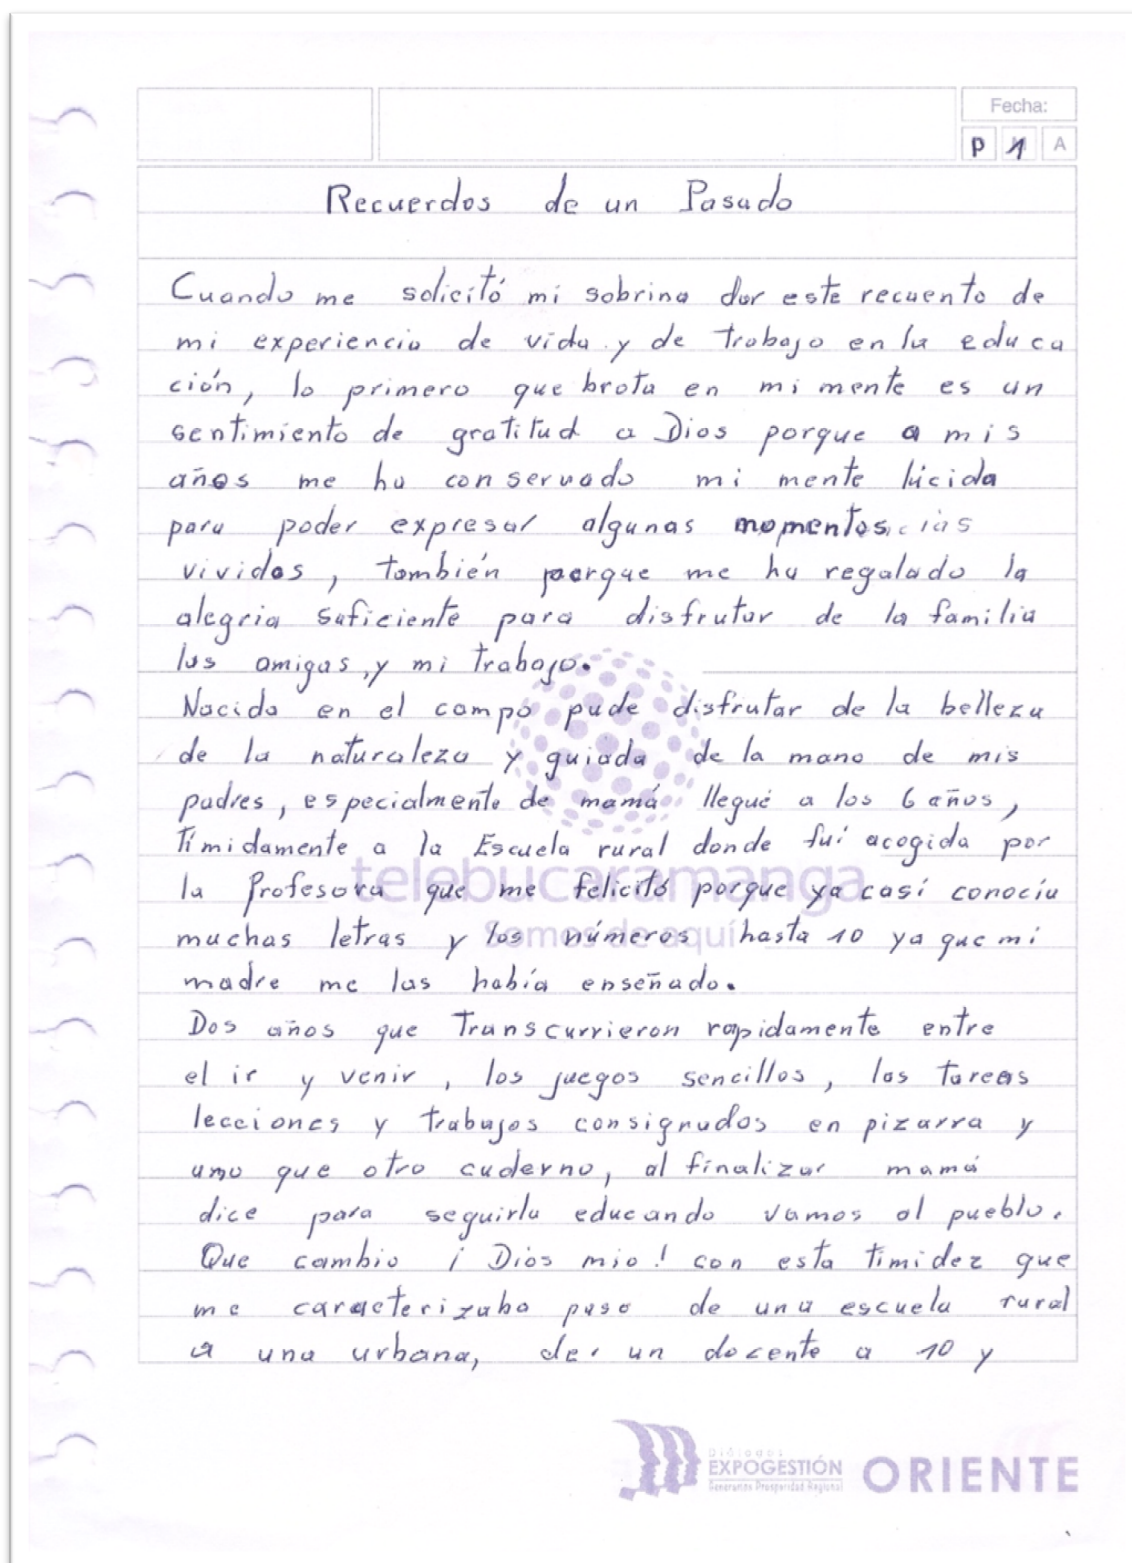 Fecha:
P 1 A
Recuerdos de un Pasado
Cuando me solicitó mi sobrina dar este recuento de
mi experiencia de vida y de trabajo en la educa
ción, lo primero que brota en mi mente es un
sentimiento de gratitud a Dios porque a mis
años me ha conservado mi mente lúcida
para poder expresar algunas momentos cias
vividos, también porque me ha regalado la
alegria suficiente para disfrutar de la familia
las amigas, y mi trabajo.
Nacida en el campo pude disfrutar de la belleza
de la naturaleza y guiada de la mano de mis
padres, especialmente de mamá llegué a los 6 años,
Tímidamente a la Escuela rural donde fuí acogida por
la Profesora que me felicitó porque ya casí conocía
muchas letras y los números hasta 10 ya que mi
madre me las había enseñado.
Dos años que Transcurrieron rapidamente entre
el ir y venir, los juegos sencillos, las tareas
lecciones y trabajos consignados en pizarra y
uno que otro cuderno, al finalizar mamá
dice para seguirla educando vamos al pueblo.
Que cambio ¡Dios mio! con esta timidez que
me caracterizaba paso de una escuela rural
a una urbana, de un docente a 10 y
telebucaramanga
Somos de aquí
Diálogos
EXPOGESTIÓN ORIENTE
Generando Prosperidad Regional